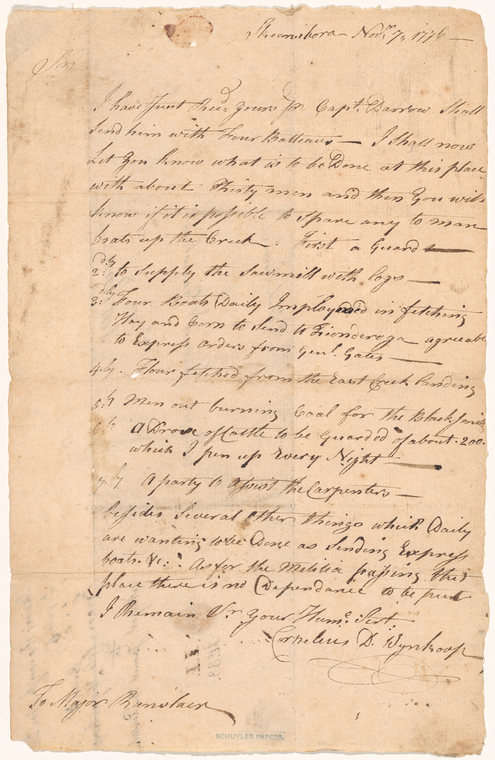 Skeensbora Novr. 7, 1776 —
Sir
I have Just Recd. yours pr Capt. Darrow Shall
Send him with Four Batteaus — I shall now
Let You know what is to be Done at this place
with about Thirty men and then You will
know if it is possible to Spare any to man
boats up the Creek. First a Guard —
2dly to Supply the Sawmill with Logs —
3dly Four Boats Daily Employed in fetching
Hay and Corn to Send to Ticonderoga agreeable
to Express orders from Genl. Gates —
4ly. Flour fetched from the East Creek Landing
5th Men out burning Coal for the Blacksmith
6th A Drove of Cattle to be Guarded of about 200
which I pen up Every Night —
7ly A party to assist the Carpenters —
besides Several other things which Daily
are wanting to be Done as Sending Express
boats &c: As for the Melitia passing this
place there is no Dependance to be put
I Remain Sr. your Humb. Sert.
Cornelius D. Wynkoop
To Major Renslaer
SCHUYLER PAPERS.